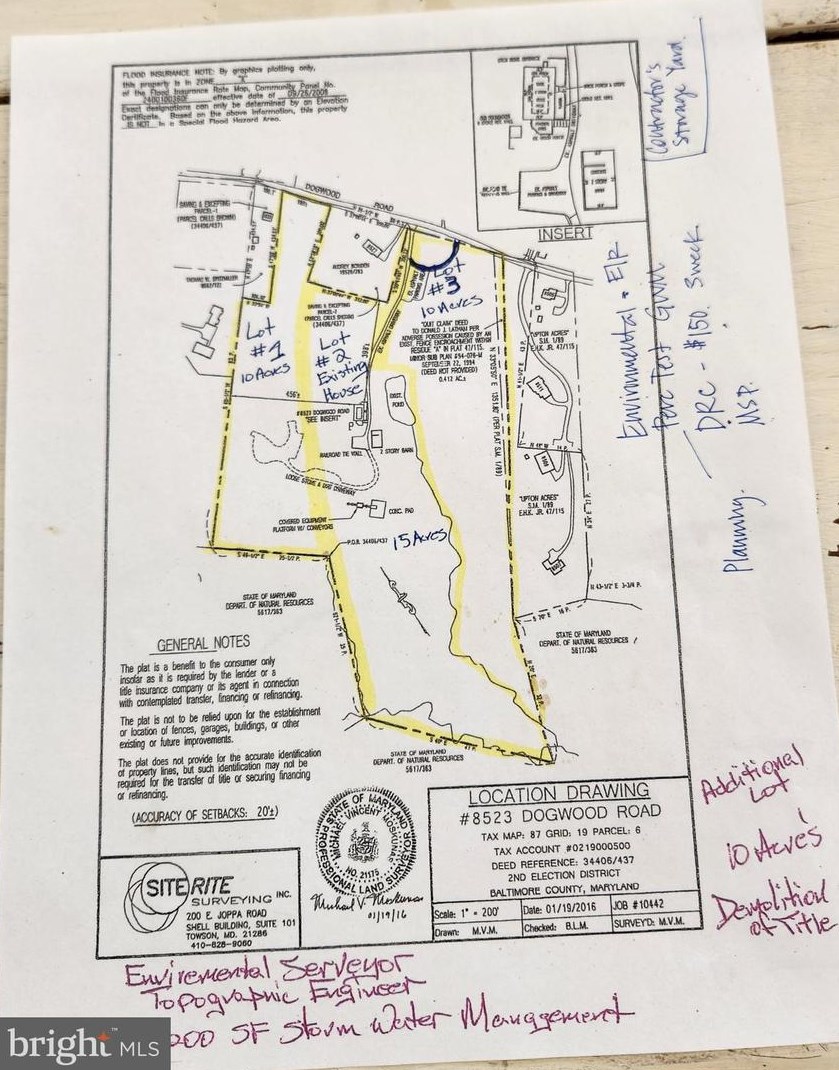 FLOOD INSURANCE NOTE: By graphics plotting only,
this property is in ZONE "X"
of the Flood Insurance Rate Map, Community Panel No.
effective date of 09/26/2008
Exact designations can only be determined by an Elevation
Certificate. Based on the above information, this property
IS NOT in a Special Flood Hazard Area.
INSERT
Contractor's
Storage Yard.
DOGWOOD ROAD
SAVING & EXCEPTING
PARCEL-1
(PARCEL CALLS SHOWN)
(34406/437)
SAVING & EXCEPTING
PARCEL-2
(PARCEL CALLS SHOWN)
(34406/437)
Lot
#1
10 Acres
Lot
#2
Existing
House
Lot
#3
10 Acres
"QUIT CLAIM" DEED
TO DONALD J. LATHAM PER
ADVERSE POSSESSION CAUSED BY AN
EXIST. FENCE ENCROACHMENT WITHIN
RESIDUE "A" IN PLAT 47/115.
MINOR SUB PLAN #94-076-M
SEPTEMBER 22, 1994
(DEED NOT PROVIDED)
0.412 AC.±
"UPTON ACRES"
S.M. 1/89
E.H.K. JR. 47/115
456'±
#8523 DOGWOOD ROAD
"SEE INSERT"
EXIST.
POND
RAILROAD TIE WALL
2 STORY BARN
LOOSE STONE & DIRT DRIVEWAY
CONC. PAD
COVERED EQUIPMENT
PLATFORM W/ CONVEYORS
P.O.B. 34406/437
15 Acres
"UPTON ACRES"
S.M. 1/89
E.H.K. JR. 47/115
Environmental = EIR
Perc Test Givin
DRC - $150. 3 week
NSP.
Planning.
STATE OF MARYLAND
DEPART. OF NATURAL RESOURCES
5617/383
STATE OF MARYLAND
DEPART. OF NATURAL RESOURCES
5617/383
STATE OF MARYLAND
DEPART. OF NATURAL RESOURCES
5617/383
GENERAL NOTES
The plat is a benefit to the consumer only
insofar as it is required by the lender or a
title insurance company or its agent in connection
with contemplated transfer, financing or refinancing.
The plat is not to be relied upon for the establishment
or location of fences, garages, buildings, or other
existing or future improvements.
The plat does not provide for the accurate identification
of property lines, but such identification may not be
required for the transfer of title or securing financing
or refinancing.
(ACCURACY OF SETBACKS: 20'±)
STATE OF MARYLAND
MICHAEL VINCENT MOSKUNAS
NO. 21175
PROFESSIONAL LAND SURVEYOR
Michael V. Moskunas
01/19/16
SITE RITE
SURVEYING INC.
200 E. JOPPA ROAD
SHELL BUILDING, SUITE 101
TOWSON, MD. 21286
410-828-9060
LOCATION DRAWING
#8523 DOGWOOD ROAD
TAX MAP: 87 GRID: 19 PARCEL: 6
TAX ACCOUNT #0219000500
DEED REFERENCE: 34406/437
2ND ELECTION DISTRICT
BALTIMORE COUNTY, MARYLAND
Scale: 1" = 200' Date: 01/19/2016 JOB #10442
Drawn: M.V.M. Checked: B.L.M. SURVEY'D: M.V.M.
Additional
Lot
10 Acres
Demolition
of Title
Enviremental Serveyor
Topographic Engineer
200 SF Storm Water Management
bright MLS